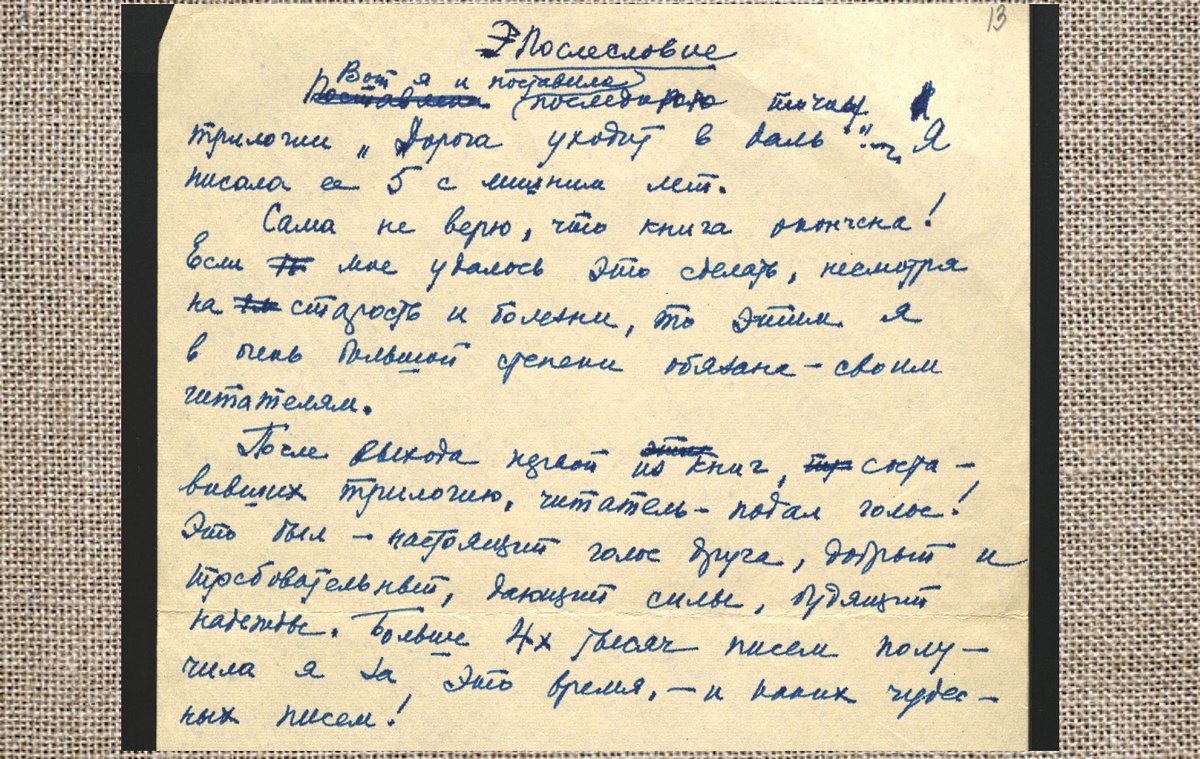 13
Послесловие
Вот я и поставила
Поставлена последнюю точку в
трилогии „Дорога уходит в даль..." Я
писала ее 5 с лишним лет.
Сама не верю, что книга окончена!
Если мне удалось это сделать, несмотря
на старость и болезни, то этим я
в очень большой степени обязана – своим
читателям.
После выхода первой из книг, соста-
вивших трилогию, читатель – подал голос!
Это был – настоящий голос друга, добрый и
требовательный, дающий силы, будящий
надежды. Больше 4х тысяч писем полу-
чила я за это время, – и каких чудес-
ных писем!